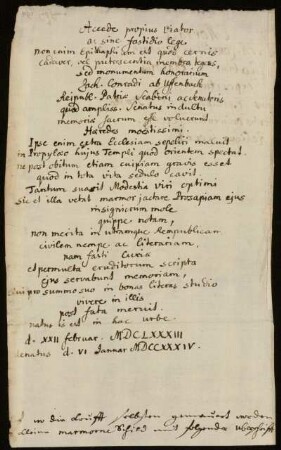 Accede propius Viator
ac sine fastidio Lege
non enim Epitaphium est quod cernis
cadaver, vel putrescentia membra tegens,
sed monumentum honorarium
Zach. Conradi ab Uffenbach
Reipubl. Patriae Scabini ac Senatoris
quod ampliss. Senatus indultu
memoriae sacrum esse voluerunt
Haeredes moestissimi.
Ipse enim extra Ecclesiam sepeliri maluit
in Propylaeo hujus Templi quod orientem spectat
ne post obitum etiam cuipiam gravis esset
quod in tota vita sedulo cavit.
Tantum suasit Modestia viri optimi
sed et illa vetat marmor jactare Prosapiam ejus
insignium mole
quippe notam,
non merita in utramque Rempublicam
civilem nempe ac literariam.
nam fasti Curiae
et permulta eruditorum scripta
ejus servabunt memoriam,
qui pro summo suo in bonas literas studio
vivere in illis
post fata meruit.
natus is est in hac urbe
d. XXII februar. MDCLXXXIII
denatus d. VI Januar MDCCXXXIV.
in die
selbsten gemauert worden
marmorne Schild mit folgender Uberschrifft